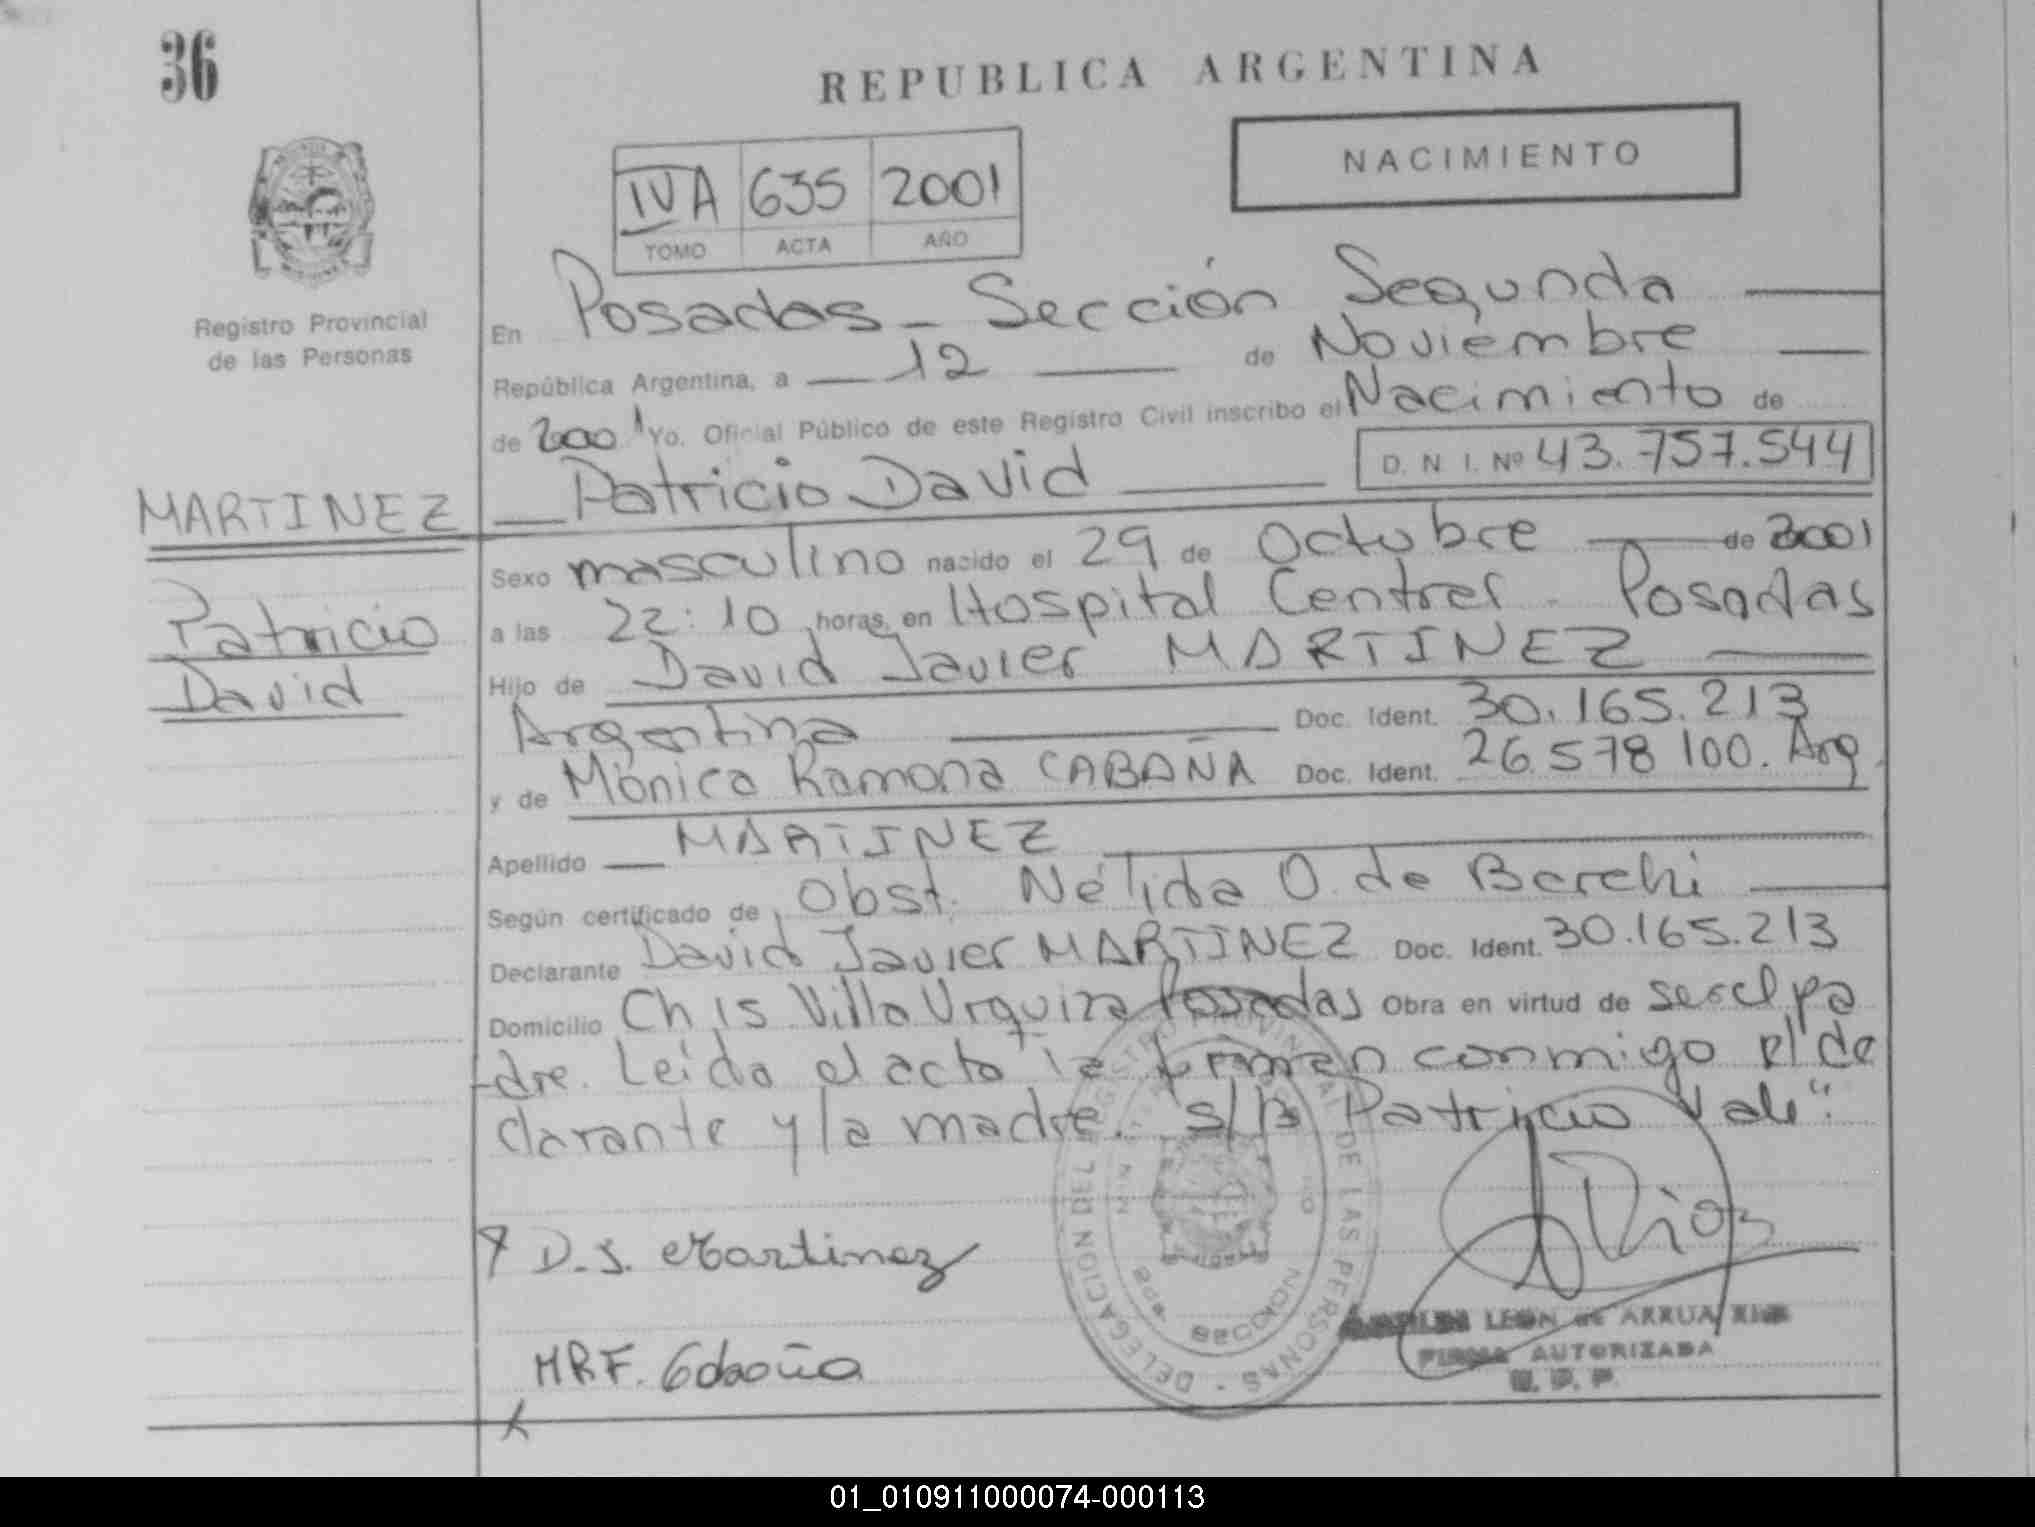 36
REPUBLICA ARGENTINA
NACIMIENTO
IVA 635 2001
TOMO ACTA AÑO
Registro Provincial
de las Personas
En Posadas - Sección Segunda
República Argentina, a 12 de Noviembre
de 2001 Yo. Oficial Público de este Registro Civil inscribo el Nacimiento de
MARTINEZ Patricio David D. N. I. Nº 43.757.544
Patricio
David
Sexo masculino nacido el 29 de Octubre de 2001
a las 22:10 horas, en Hospital Central - Posadas
Hijo de David Javier MARTINEZ
Argentina Doc. Ident. 30.165.213
y de Mónica Ramona CABAÑA Doc. Ident. 26.578.100. Arg.
Apellido MARTINEZ
Según certificado de Obst. Nélida O. de
Declarante David Javier MARTINEZ Doc. Ident. 30.165.213
Domicilio Ch 15 Villa Urquiza Posadas Obra en virtud de ser el pa
-dre. Leída el acta la firman conmigo el de
clarante y la madre. s/b Patricio Vale".
D. J. Martinez
REGISTRO PROVINCIAL DE LAS PERSONAS - DELEGACION DEL
SECCION 2da
LEON de ARRUA
FIRMA AUTORIZADA
01_010911000074-000113